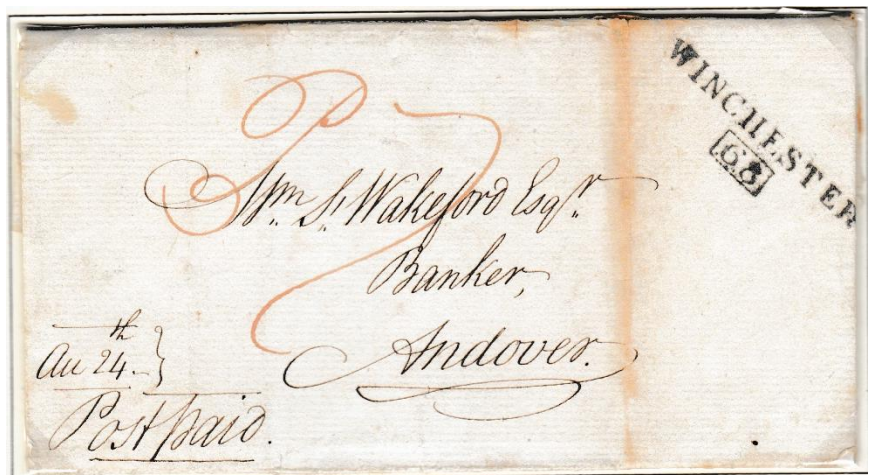 WINCHESTER
68
Wm. S. Wakeford Esqr.
Banker,
Andover.
Au 24th
Post paid.